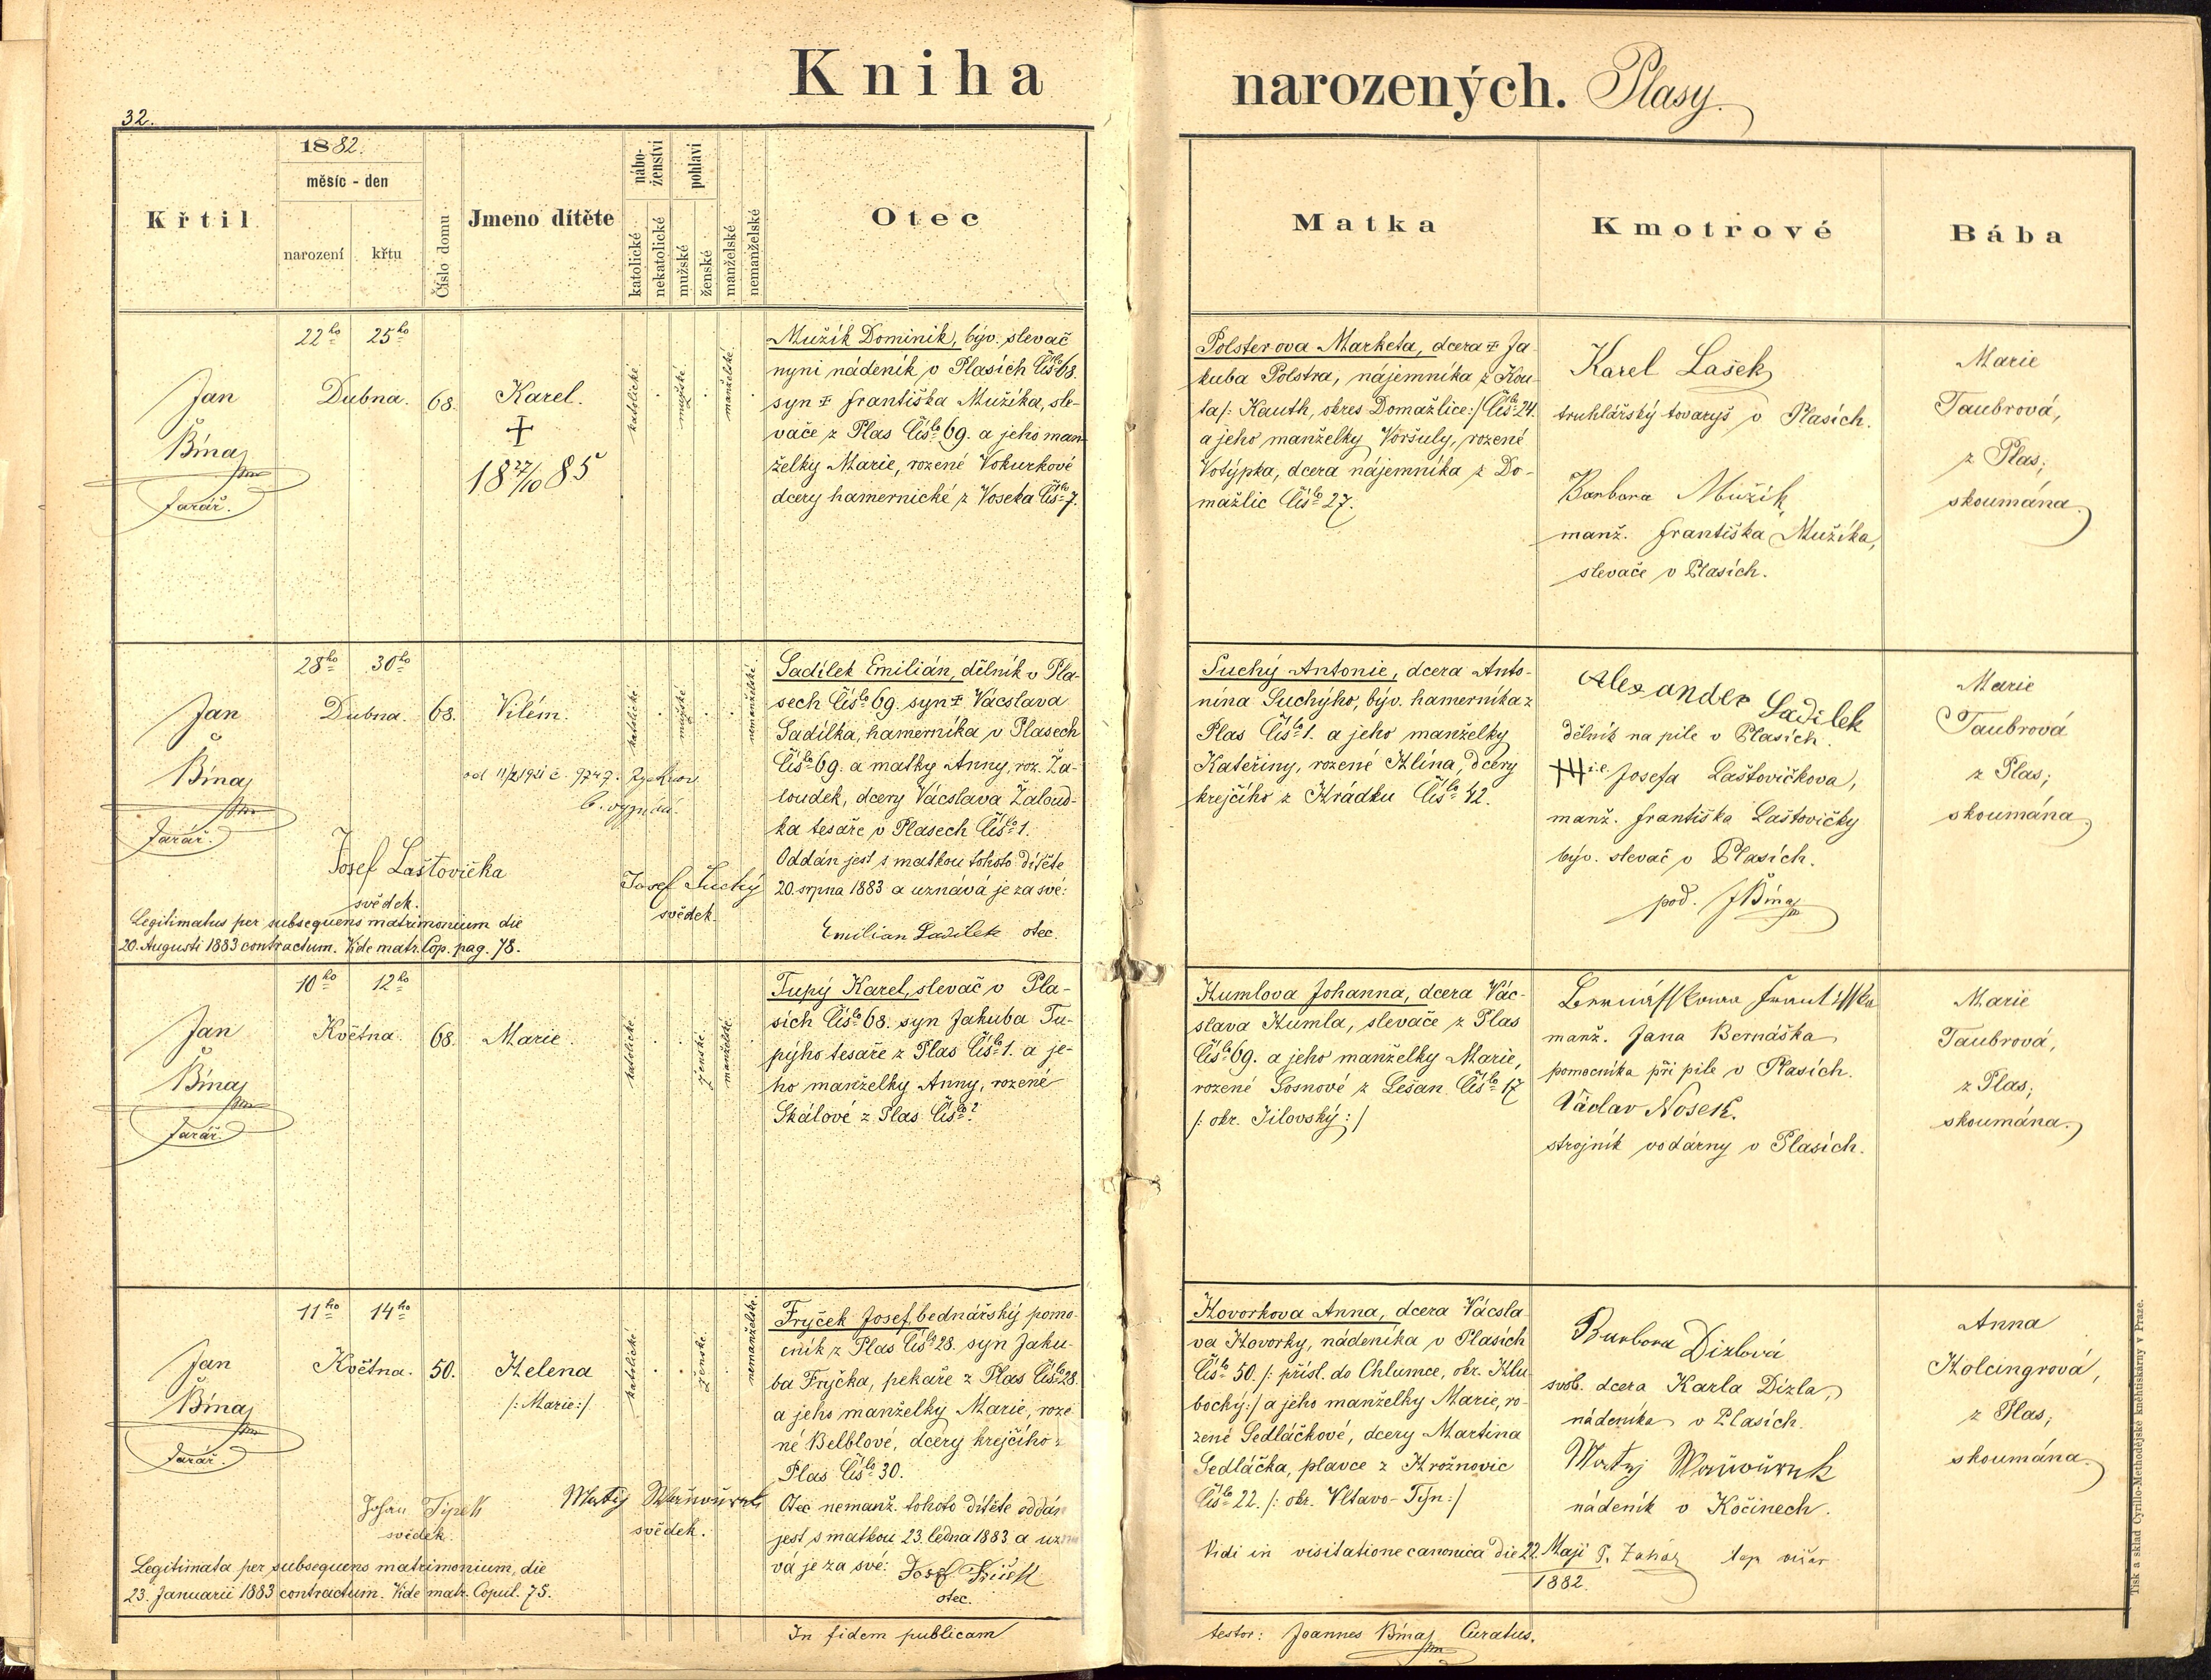 Kniha narozených. Plasy.
32.
Křtil
1882.
měsíc - den
narození
křtu
Číslo domu
Jmeno dítěte
nábo-
ženství
katolické
nekatolické
pohlaví
mužské
ženské
manželské
nemanželské
Otec
Matka
Kmotrové
Bába
22ho 25ho
Dubna.
Jan
Bína
farář.
68.
Karel.
+
18 27/10 85
katolické
mužské
manželské
Mužík Dominik, býv. slevač
nyni nádeník v Plasích Čís. 68.
syn + Františka Mužíka, sle-
vače z Plas Čís. 69. a jeho man-
želky Marie, rozené Vokurkové
dcery hamernické z Voseka Čís. 7.
Polsterova Marketa, dcera + Ja-
kuba Polstra, nájemníka z Kou-
ta /: Kauth, okres Domažlice :/ Čís. 24.
a jeho manželky Voršuly, rozené
Votýpka, dcera nájemníka z Do-
mažlic Čís. 27.
Karel Lašek
truhlářský tovaryš v Plasích.
Barbora Mužík
manž. Františka Mužíka,
slevače v Plasích.
Marie
Taubrová,
z Plas;
skoumána.
28ho 30ho
Dubna.
Jan
Bína
farář.
68.
Vilém.
katolické
mužské
nemanželské
od 11/2 1921 č. 9747.
b. vyznání.
Josef Laštovička
svědek.
Josef Suchý
svědek.
Legitimatus per subsequens matrimonium die
20. Augusti 1883 contractum. Vide matr. Cop. pag. 78.
Sadílek Emilián, dělník v Pla-
sech Čís. 69. syn + Vácslava
Sadílka, hamerníka v Plasech
Čís. 69. a matky Anny, roz. Ža-
loudek, dcery Vácslava Žaloud-
ka tesaře v Plasech Čís. 1.
Oddán jest s matkou tohoto dítěte
20. srpna 1883 a uznává je za své:
Emilian Sadilek otec.
Suchý Antonie, dcera Anto-
nína Suchýho, býv. hamerníka z
Plas Čís. 1. a jeho manželky
Kateřiny, rozené Hlína, dcery
krejčího z Hrádku Čís. 42.
Alexander Sadilek
dělník na pile v Plasích.
+++ i.e. Josefa Laštovičkova,
manž. Františka Laštovičky
býv. slevač v Plasích.
pod. J Bína
Marie
Taubrová
z Plas;
skoumána.
10ho 12ho
Května.
Jan
Bína
farář.
68.
Marie.
katolické
ženské
manželské
Tupý Karel, slevač v Pla-
sích Čís. 68. syn Jakuba Tu-
pýho tesaře z Plas Čís. 1. a je-
ho manželky Anny, rozené
Skálové z Plas Čís. ?
Humlova Johanna, dcera Vác-
slava Humla, slevače z Plas
Čís. 69. a jeho manželky Marie,
rozené Sosnové z Lešan Čís. 17
/: okr. Jilovský :/
Bernásskowa Frantisska
manž. Jana Bernáška
pomocníka při pile v Plasích.
Václav Nosek.
strojník vodárny v Plasích.
Marie
Taubrová,
z Plas;
skoumána.
11ho 14ho
Května.
Jan
Bína
farář.
50.
Helena
/: Marie :/
katolické
ženské
nemanželské
Johan Tipelt
svědek.
Matěj
svědek.
Legitimata per subsequens matrimonium, die
23. Januarii 1883 contractum. Vide matr. Copul. 75.
Fryček Josef, bednářský pomo-
cník z Plas Čís. 28. syn Jaku-
ba Fryčka, pekaře z Plas Čís. 28.
a jeho manželky Marie, roze-
né Belblové, dcery krejčího z
Plas Čís. 30.
Otec nemanž. tohoto dítěte oddán
jest s matkou 23. ledna 1883 a uzná-
vá je za své: Josef
otec.
Hovorkova Anna, dcera Vácsla-
va Hovorky, nádeníka v Plasích
Čís. 50. /: přísl. do Chlumce, okr. Hlu-
bocký :/ a jeho manželky Marie, ro-
zené Sedláčkové, dcery Martina
Sedláčka, plavce z Hrožnovic
Čís. 22. /: okr. Vltavo-Týn :/
Barbora Dizlová
svob. dcera Karla Dízla,
nádeníka v Plasích.
Matěj
nádeník v Kočinech.
Anna
Holcingrová,
z Plas;
skoumána.
Vidi in visitatione canonica die 22. Maji
1882.
In fidem publicam
testor: Joannes Bína Curatus.
Tisk a sklad Cyrillo-Methodějské kněhtiskárny v Praze.